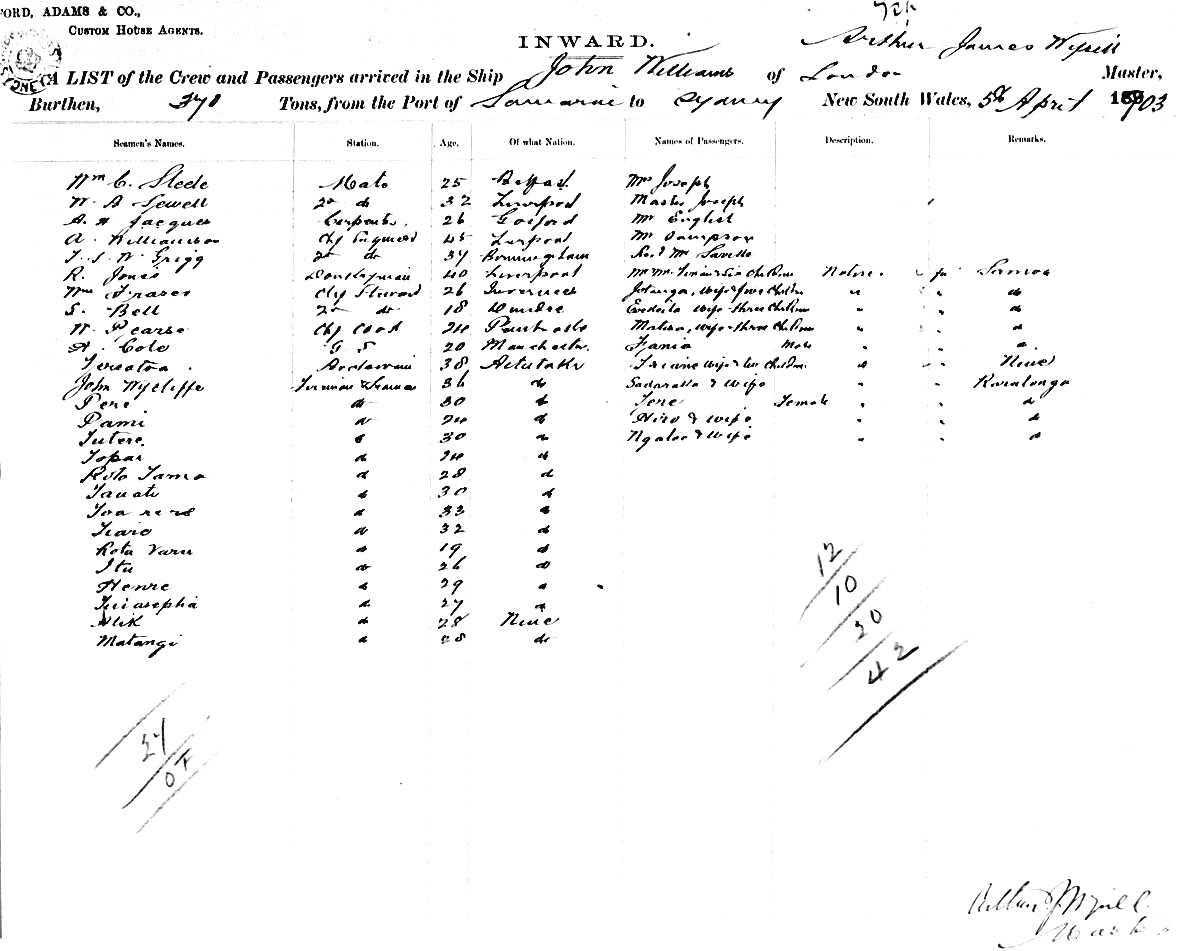 FORD, ADAMS & CO.,
CUSTOM HOUSE AGENTS.
INWARD.
Arthur James
A LIST of the Crew and Passengers arrived in the Ship John Williams of London Master,
Burthen, Tons, from the Port of Samarai to Sydney New South Wales, 5th April 1903
Seamen's Names. Station. Age. Of what Nation. Names of Passengers. Description. Remarks.
Wm C. Steele Mate 25 Belfast Mrs Joseph
W. A Sewell 2nd do 32 Liverpool Master Joseph
A. H Jacques Carpenter 26 Gosford Mr English
A. Williamson Chf Engineer 45 Liverpool Mr Sampson
T. S. W. Grigg 2nd do 37 Birmingham Revd Mr Saville
R. Jones Donkeyman 40 Liverpool Mr Mrs & Six Children Native for Samoa
Wm Fraser Chf Steward 26 Inverness wife & five Children " " do
S. Bell 2nd do 18 Dundee wife three Children " " do
W. Pearse Chf Cook 24 wife three Children " " do
A. Cole G S 20 Manchester Fania Male " " do
38 Aitutaki wife & two Children " " Niue
John Wycliffe 36 do & Wife " " Raratonga
Pere do 30 do Tere Female " " do
Pami do 24 do Hiro & wife " " do
Tutere do 30 do Ngatae & wife " " do
Topai do 24 do
Roto Tama do 28 do
Tauati do 30 do
do 33 do
Tiaro do 32 do
Rota Varu do 19 do
Itu do 26 do
Henre do 29 do
do 27 do
Alik do 28 Niue
Matangi do 28 do
12
10
20
42
27